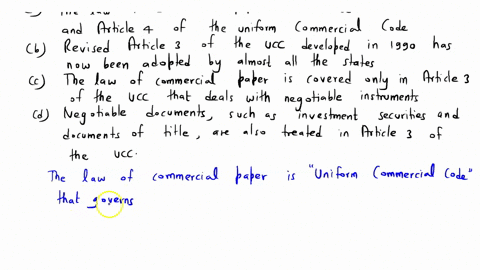 and Article 4 of the uniform Commercial Code
(b) Revised Article 3 of the UCC developed in 1990 has
now been adopted by almost all the states
(c) The law of commercial paper is covered only in Article 3
of the UCC that deals with negotiable instruments
(d) Negotiable documents, such as investment securities and
documents of title, are also treated in Article 3 of
the UCC.
The law of commercial paper is "Uniform Commercial Code"
that governs